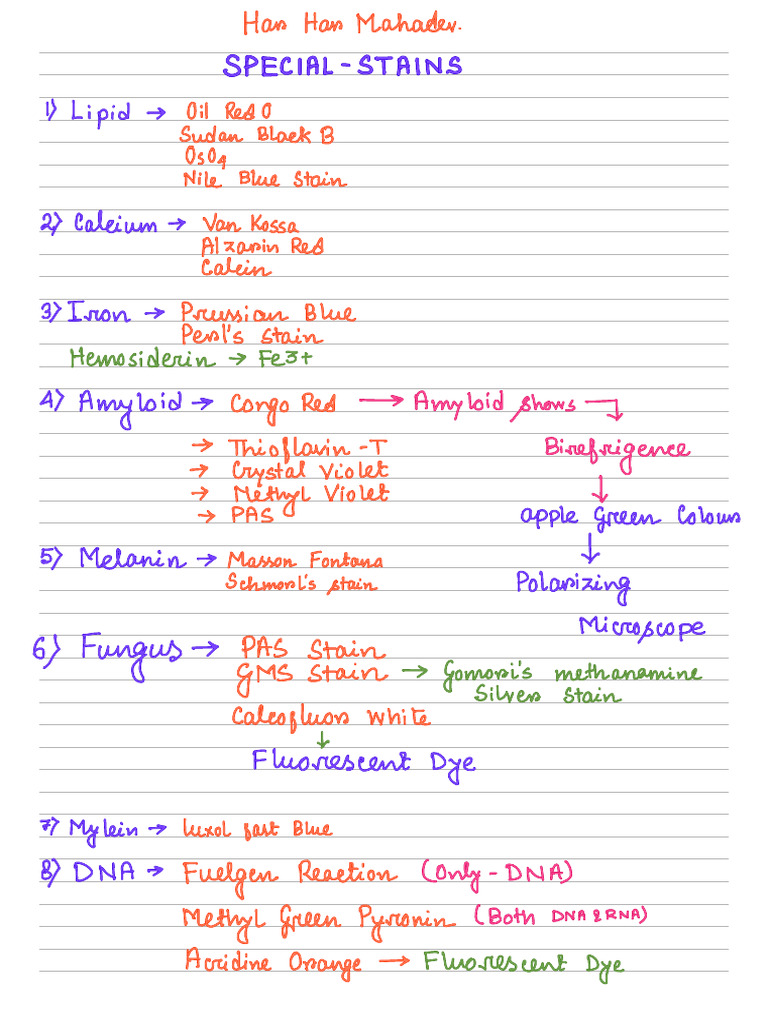 Har Har Mahadev.
SPECIAL-STAINS
1) Lipid → Oil Red O
Sudan Black B
OsO4
Nile Blue Stain
2) Calcium → Van Kossa
Alzarin Red
Calcin
3) Iron → Prussian Blue
Perl's Stain
Hemosiderin → Fe3+
4) Amyloid → Congo Red → Amyloid shows
Birefrigence
→ Thioflavin-T
→ Crystal Violet
→ Methyl Violet
→ PAS
apple Green Colour
Polarizing
Microscope
5) Melanin → Masson Fontana
Schmorl's stain
6) Fungus → PAS Stain
GMS Stain → Gomori's methanamine
Silver Stain
Calcofluor White
↓
Fluorescent Dye
7) Mylein → luxol fast Blue
8) DNA → Fuelgen Reaction (Only-DNA)
Methyl Green Pyronin (Both DNA & RNA)
Acridine Orange → Fluorescent Dye